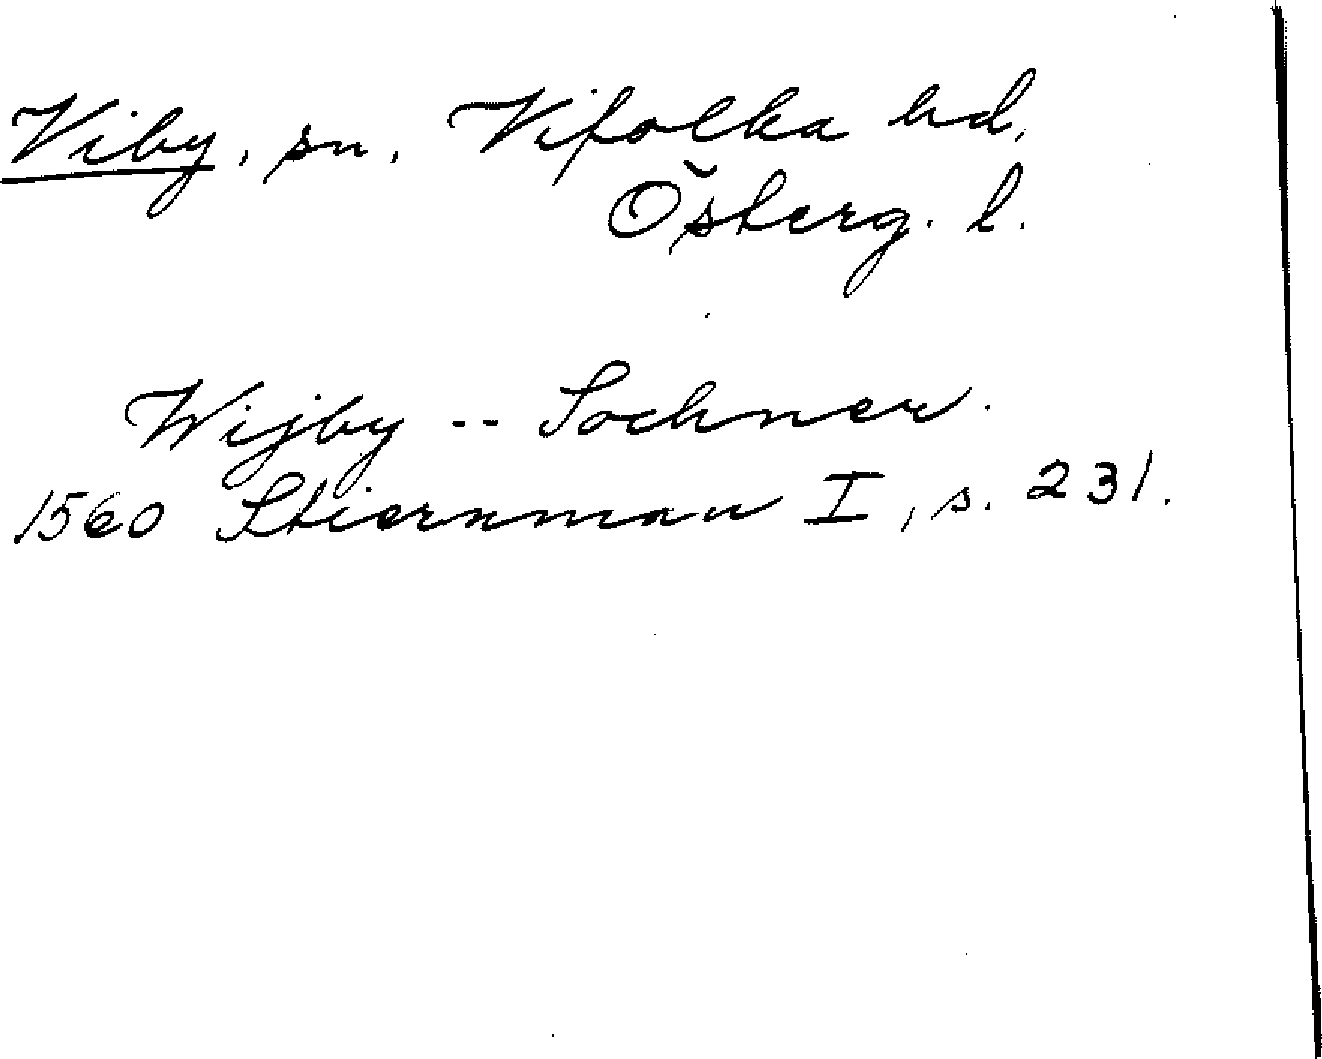 Viby, sn. Vifolka hd,
Österg. l.
Wijby -- Sochner.
1560 Stiernman I, s. 231.